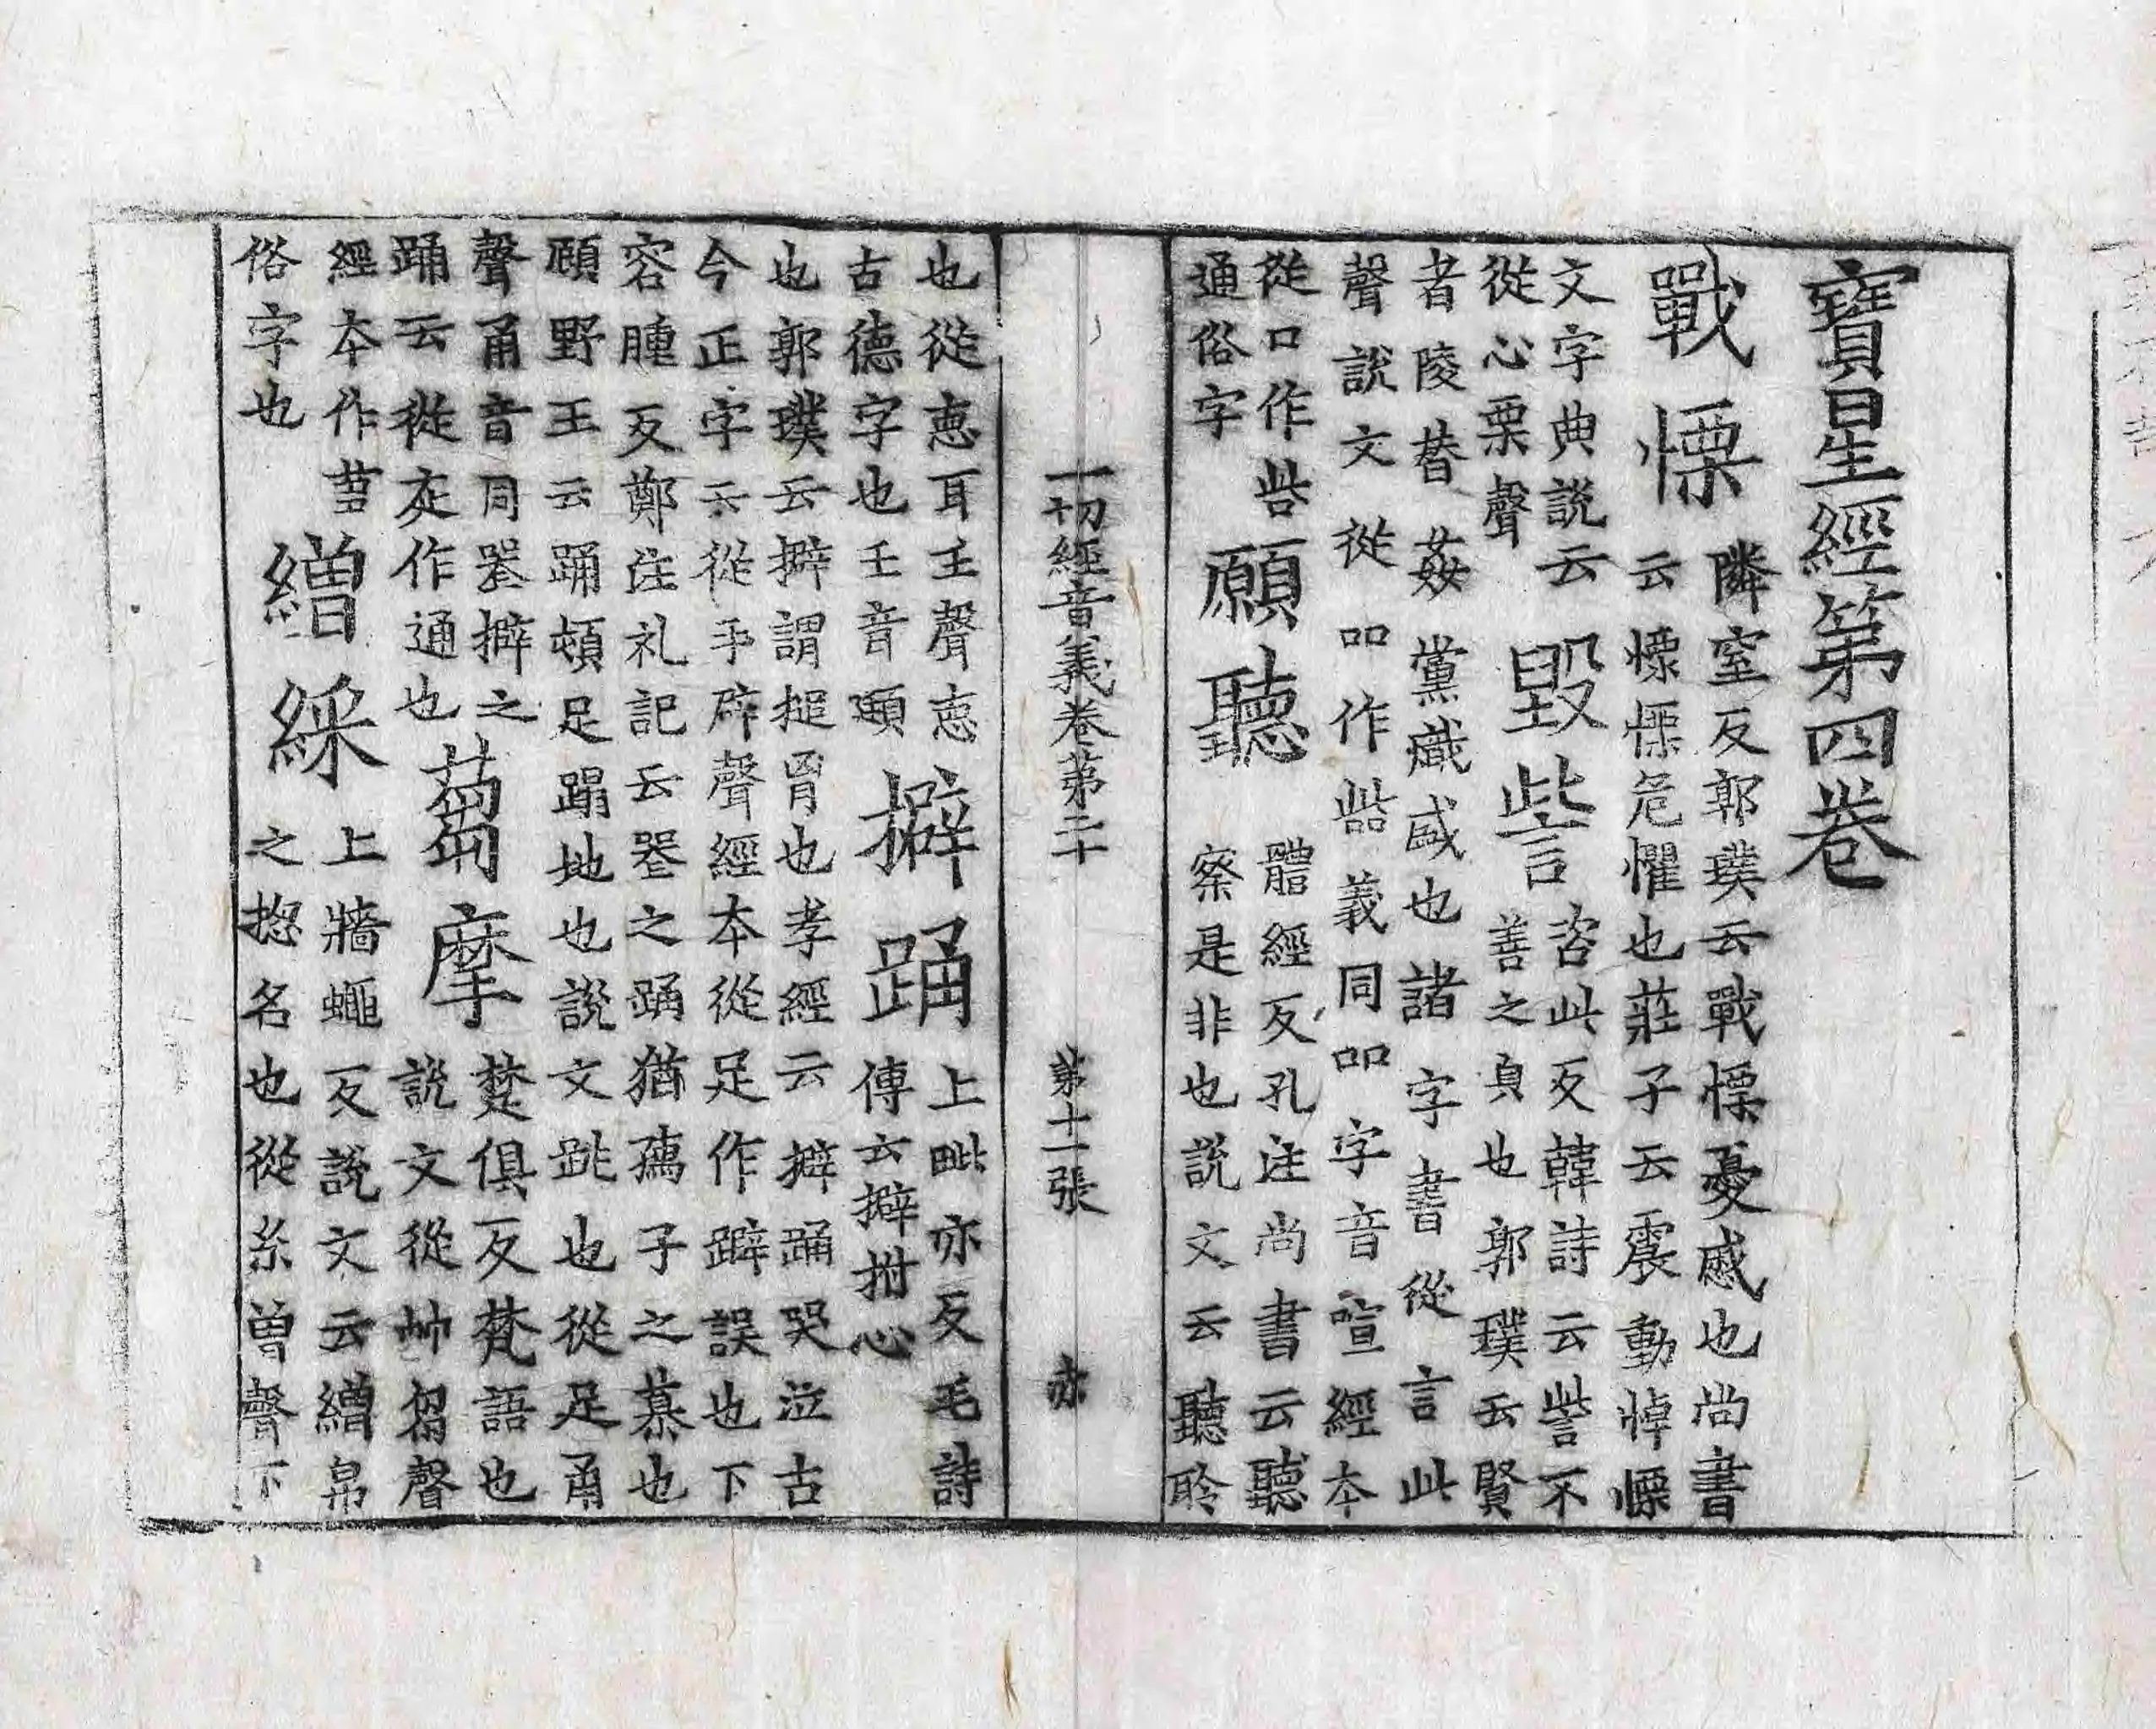 寶星經第四卷
戰慄隣窒反郭璞云戰慄憂慼也尚書
云慄慄危懼也莊子云震動悼慄
文字典說云
從心栗聲
毀訾咨此反韓詩云訾不
善之皃也郭璞云賢
者陵替姦黨熾盛也諸字書從言此
聲說文從吅作㗪義同吅字音喧經本
從口作呰
通俗字
願聽體經反孔注尚書云聽
察是非也說文云聽聆
一切經音義卷第二十 第十一張 亦
也從悳耳𡈼聲悳
古德字也𡈼音頲
擗踊上毗亦反毛詩
傳云擗拊心
也郭璞云擗謂搥胷也孝經云擗踊哭泣古
今正字云從手辟聲經本從足作躃誤也下
容腫反鄭注礼記云哭之踊猶孺子之慕也
顧野王云踊頓足蹋地也說文跳也從足甬
聲甬音同哭擗之
踊云從辵作通也
蒭摩楚俱反梵語也
說文從艸芻聲
經本作
俗字也
繒綵上牆蠅反說文云繒帛
之揔名也從糸曾聲下